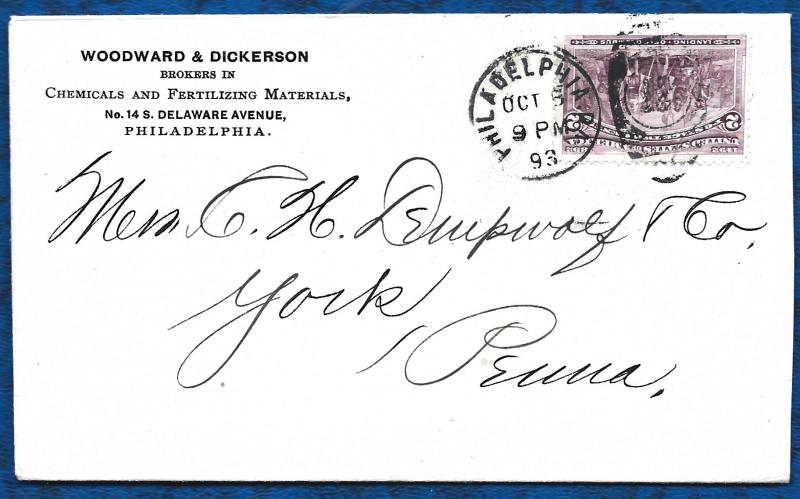 WOODWARD & DICKERSON
BROKERS IN
CHEMICALS AND FERTILIZING MATERIALS,
No. 14 S. DELAWARE AVENUE,
PHILADELPHIA.
PHILADELPHIA PA
OCT 5
9 PM
93
LANDING OF COLUMBUS
2 2
Mess C. H. Dempwolf & Co,
York
Penna.